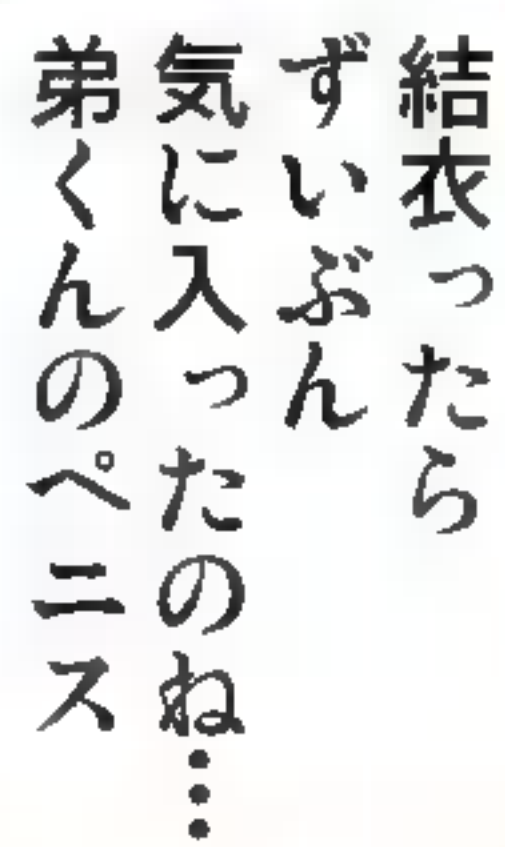 結衣ったら
ずいぶん
気に入ったのね…
弟くんのペニス